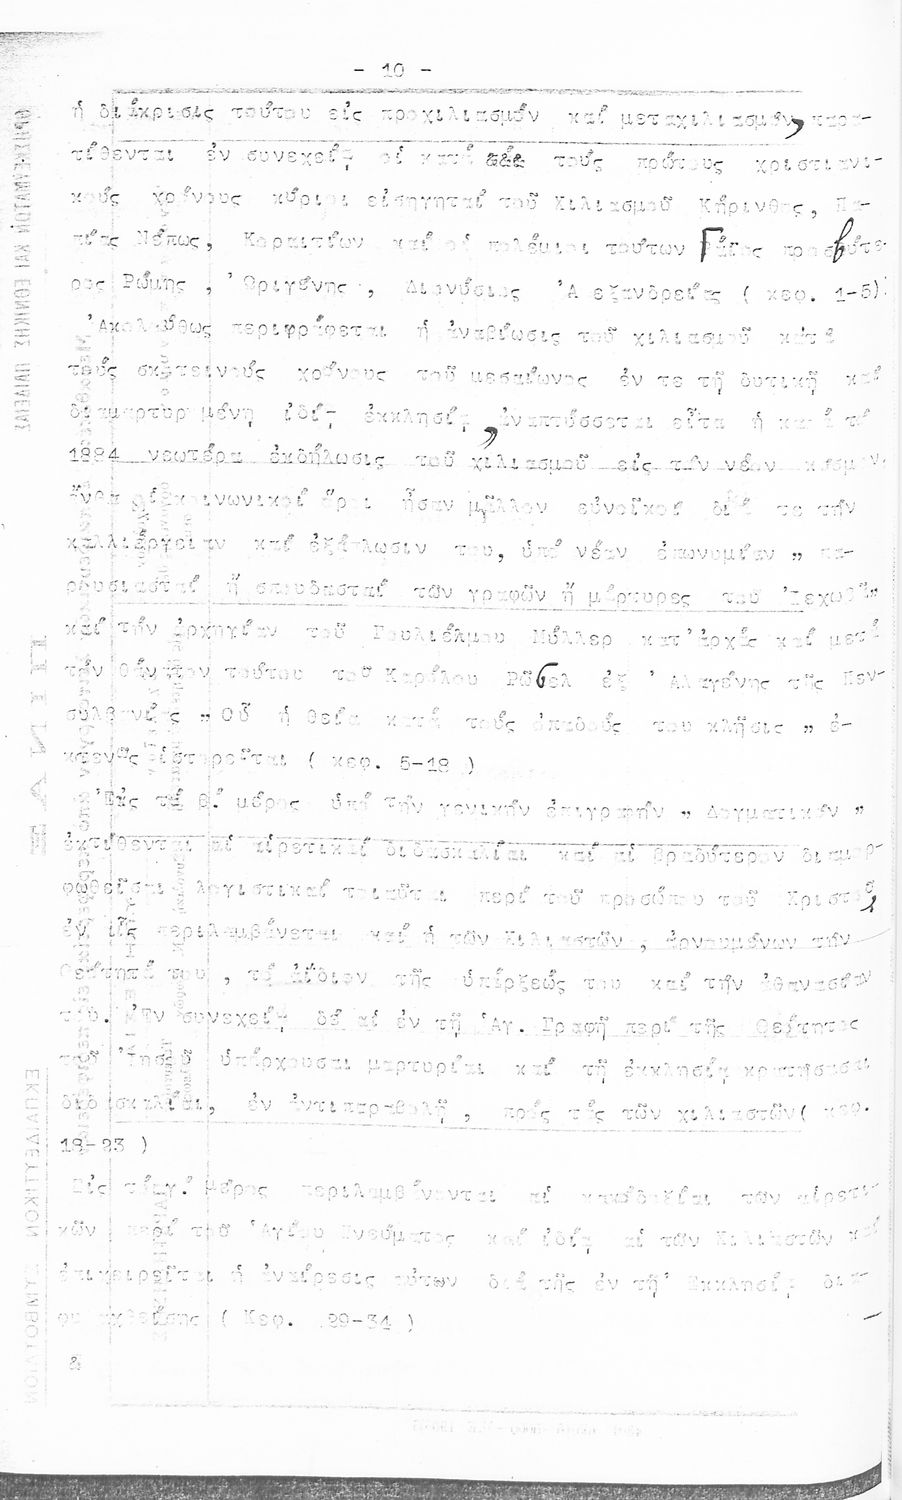 - 10 -
ἡ διάκρισις τούτου εἰς προχιλιασμόν καί μεταχιλιασμόν, παρα-
τίθενται ἐν συνεχείᾳ οἱ κατά τούς πρώτους χριστιανι-
κούς χρόνους κύριοι εἰσηγηταί τοῦ Χιλιασμοῦ Κήρινθος, Πα-
πίας Νέπως, Κορακίων καί οἱ πολέμιοι τούτων Γάϊος πρεσβύτε-
ρος Ρώμης , ᾿Ωριγένης , Διονύσιος ᾿Α εξανδρείας ( κεφ. 1-5)
᾿Ακολούθως περιφράφεται ἡ ἀναβίωσις τοῦ χιλιασμοῦ κατά
τούς σκοτεινούς χρόνους τοῦ μεσαίωνος ἐν τε τῇ δυτικῇ καί
διαμαρτυρ μένῃ ἰδίᾳ ἐκκλησίᾳ, ἀναπτύσσεται εἶτα ἡ κατά τό
1884 νεωτέρα ἐκδήλωσις τοῦ χιλιασμοῦ εἰς τόν νέον κόσμον,
ἔνθα οἱ κοινωνικοί ὅροι ἦσαν μᾶλλον εὐνοϊκοί διά τε τήν
καλλιέργειαν καί ἐξάπλωσιν του, ὑπό νέαν ἐπωνυμίαν „ πα-
ρουσιασταί ἤ σπουδασταί τῶν γραφῶν ἤ μάρτυρες τοῦ ᾿Ιεχωβᾶ"
καί τήν ἀρχηγίαν τοῦ Γουλιέλμου Μύλλερ κατ᾿ἀρχάς καί μετά
τόν θάνατον τούτου τοῦ Καρόλου Ρῶσελ ἐξ ᾿ Αλαγένης τῆς Πεν-
συλβανίας „ Οὗ ἡ θεία κατά τούς ὀπαδούς του κλῆσις „ ἐ-
κτενῶς ἱστορεῖται ( κεφ. 5-18 )
Εἰς τό β.΄ μέρος ὑπό τήν γενικήν ἐπιγραφήν „ Δογματικόν "
ἐκτίθενται αἱ αἱρετικαί διδασκαλίαι καί αἱ βραδύτερον διαμορ-
φωθεῖσαι λογιστικαί τοιαῦται περί τοῦ προσώπου τοῦ Χριστοῦ,
ἐν αἷς περιλαμβάνεται καί ἡ τῶν Χιλιαστῶν , ἀρνουμένων τήν
θεότητά του , τό ἀΐδιον τῆς ὑπάρξεώς του καί τήν ἀθανασίαν
του. ᾿Εν συνεχείᾳ δέ αἱ ἐν τῇ ῾Αγ. Γραφῇ περί τῆς Θεότητος
τοῦ ᾿Ιησοῦ ὑπάρχουσαι μαρτυρίαι καί τῇ ἐκκλησίᾳ κρατήσασαι
διδασκαλίαι, ἐν ἀντιπαραβολῇ , πρός τάς τῶν χιλιαστῶν( κεφ.
18-23 )
Εἰς τό γ.΄ μέρος περιλαμβάνονται αἱ κακοδοξίαι τῶν αἱρετι-
κῶν περί τοῦ ῾Αγίου Πνεύματος καί ἰδίᾳ αἱ τῶν Χιλιαστῶν καί
ἐπιχειρεῖται ἡ ἀναίρεσις τούτων διά τῆς ἐν τῇ᾿ Εκκλησίᾳ δια-
φυλαχθείσης ( Κεφ. 29-34 )
&